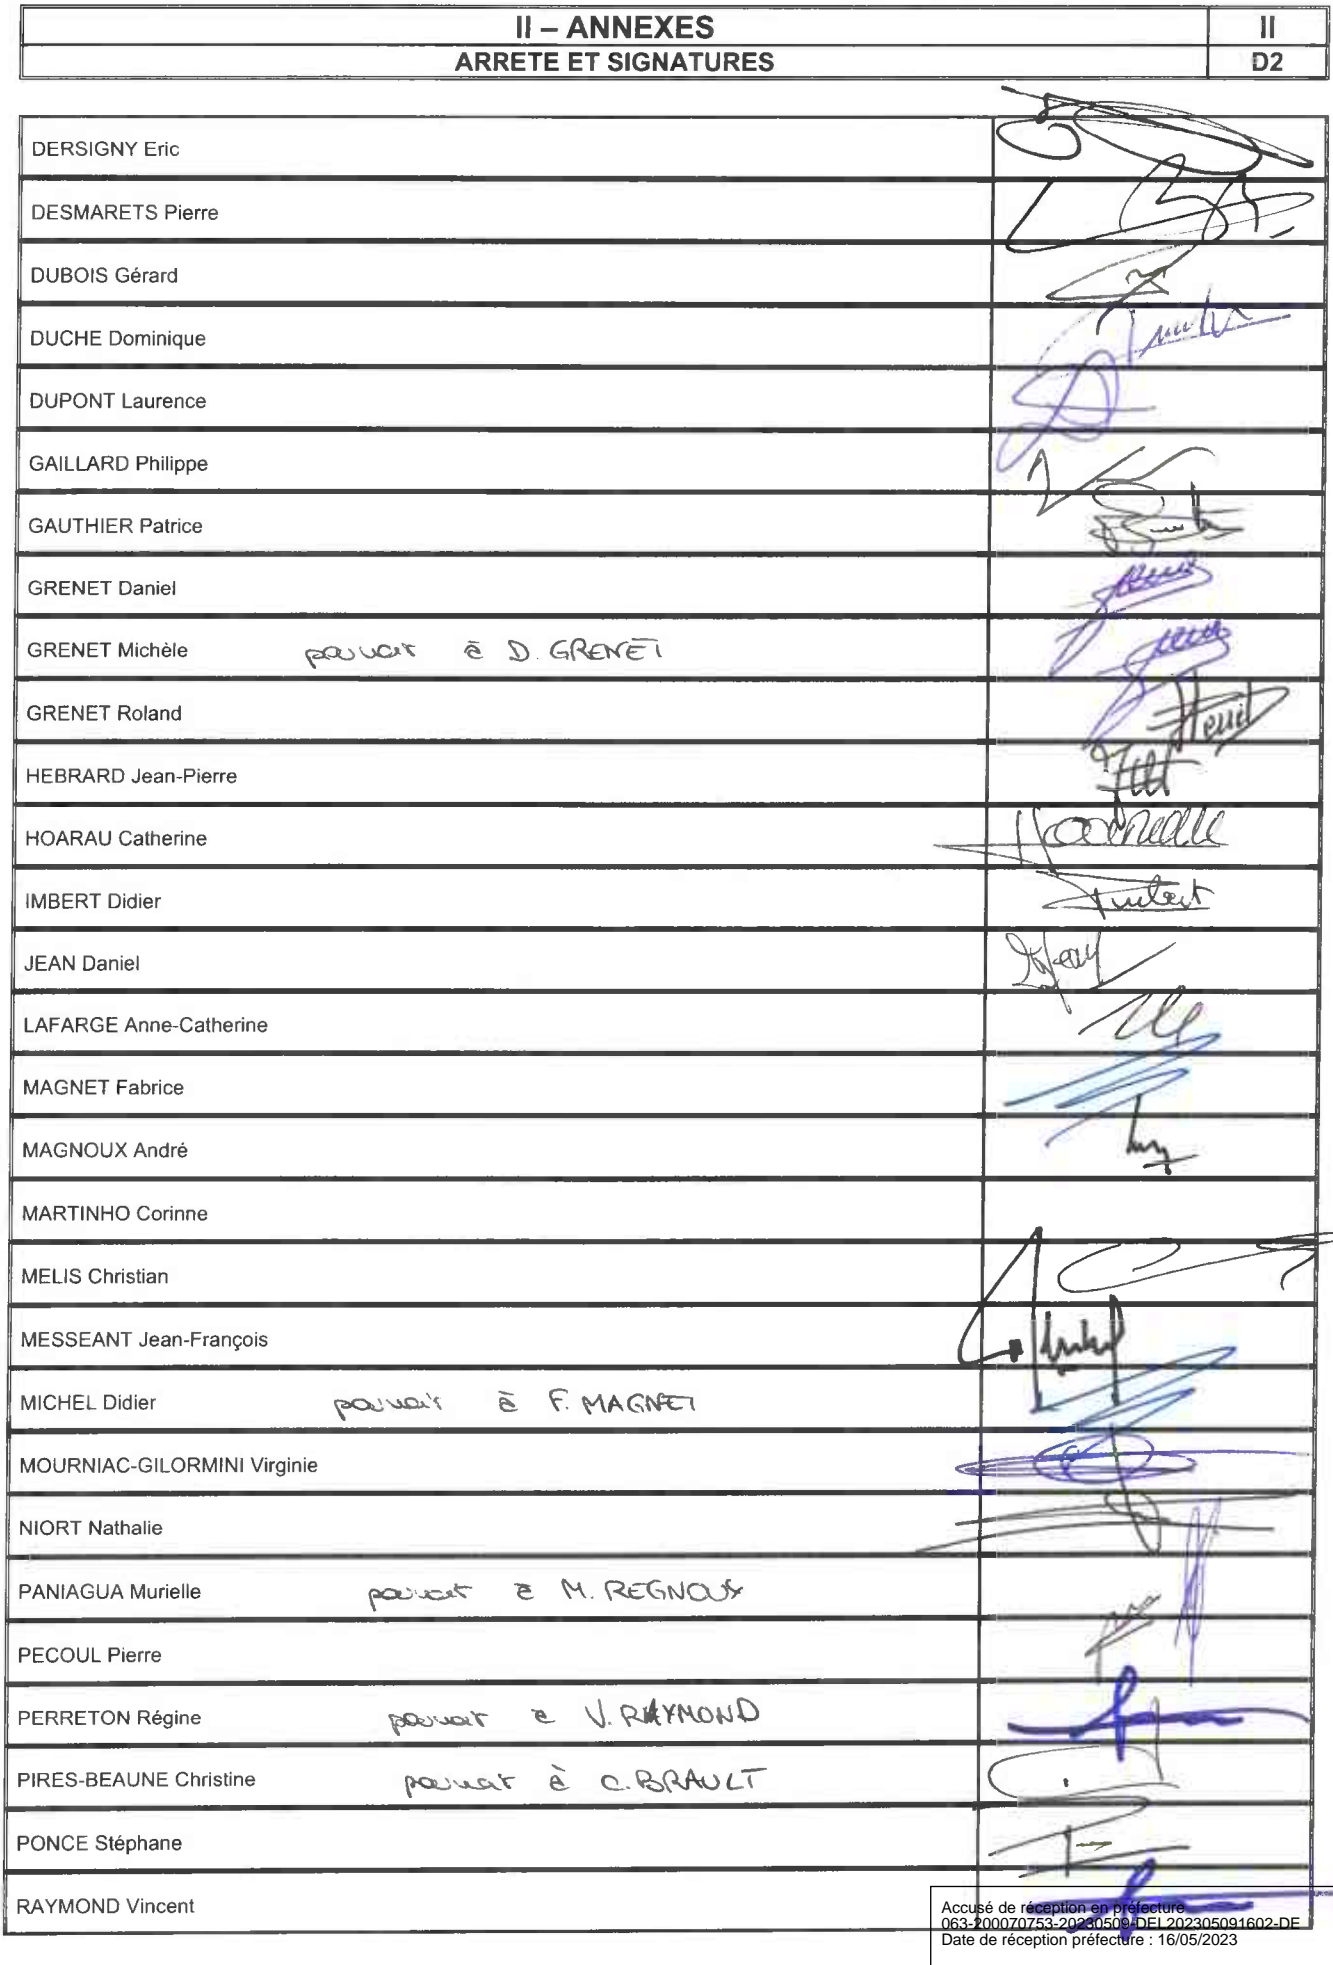 II – ANNEXES II
ARRETE ET SIGNATURES D2
DERSIGNY Eric
DESMARETS Pierre
DUBOIS Gérard
DUCHE Dominique
DUPONT Laurence
GAILLARD Philippe
GAUTHIER Patrice
GRENET Daniel
GRENET Michèle pouvoir à D. GRENET
GRENET Roland
HEBRARD Jean-Pierre
HOARAU Catherine
IMBERT Didier
JEAN Daniel
LAFARGE Anne-Catherine
MAGNET Fabrice
MAGNOUX André
MARTINHO Corinne
MELIS Christian
MESSEANT Jean-François
MICHEL Didier pouvoir à F. MAGNET
MOURNIAC-GILORMINI Virginie
NIORT Nathalie
PANIAGUA Murielle pouvoir à M. REGNOUX
PECOUL Pierre
PERRETON Régine pouvoir à V. RAYMOND
PIRES-BEAUNE Christine pouvoir à C. BRAULT
PONCE Stéphane
RAYMOND Vincent
Accusé de réception en préfecture
063-200070753-20230509-DEL202305091602-DE
Date de réception préfecture : 16/05/2023